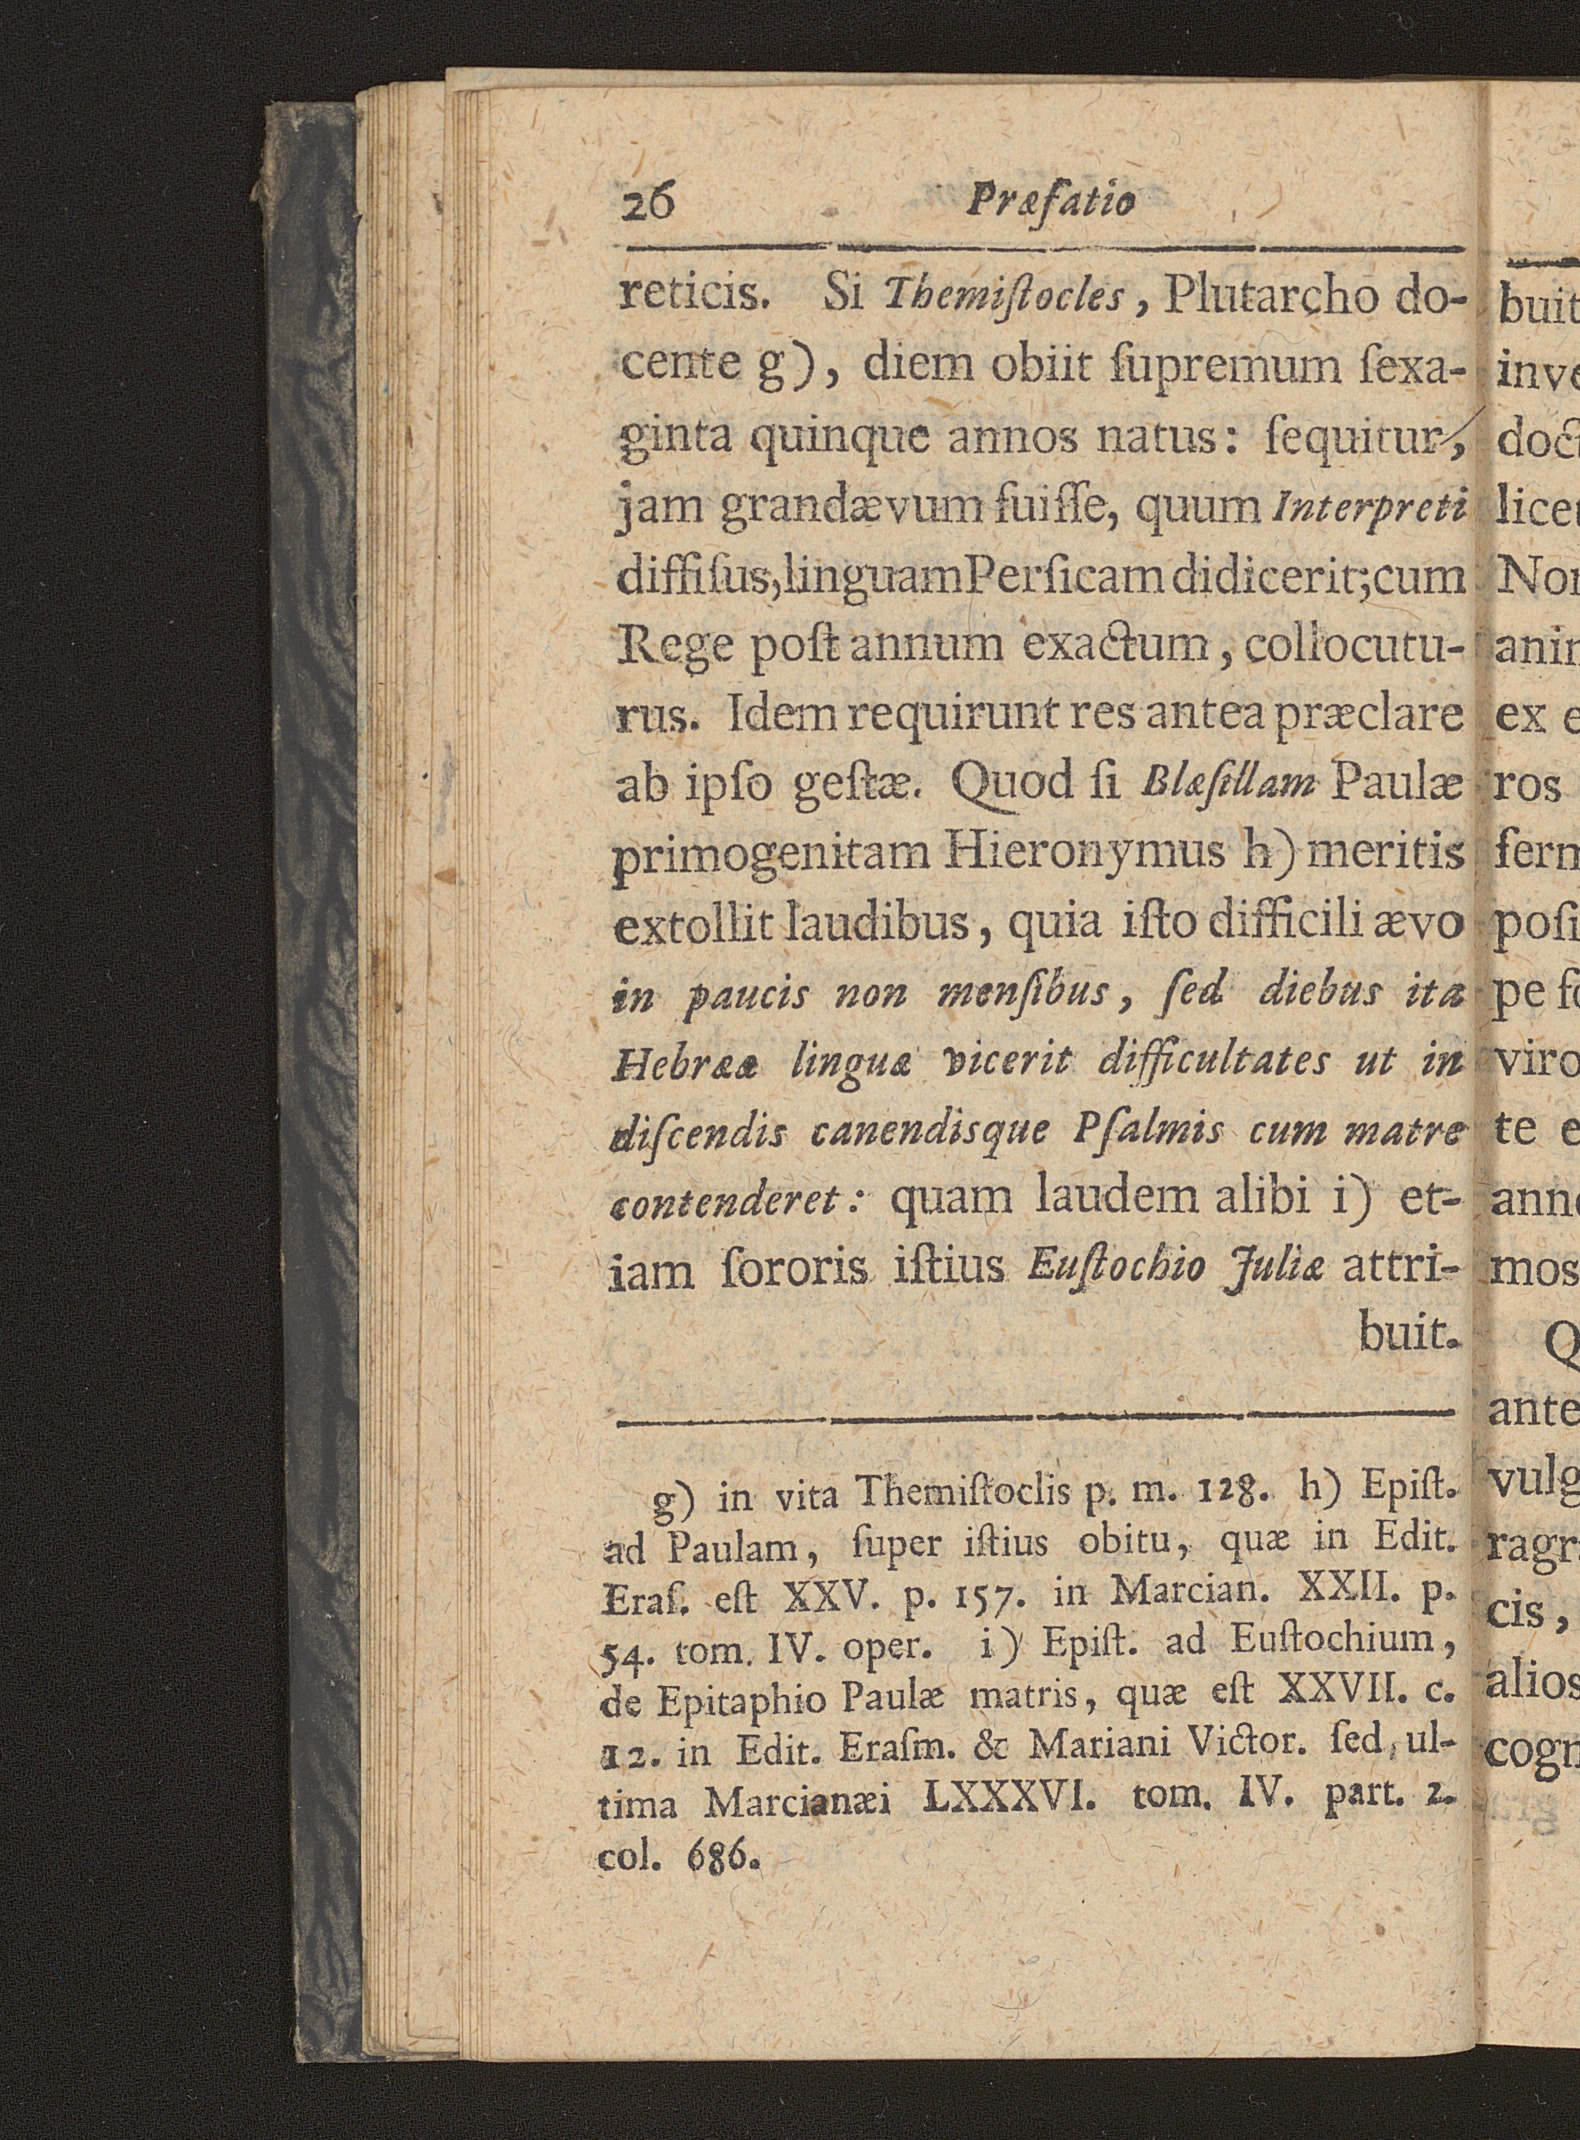 26 Præfatio
reticis. Si Themiſtocles, Plutarcho do-
cente g), diem obiit ſupremum ſexa-
ginta quinque annos natus: ſequitur,
jam grandævum fuiſſe, quum Interpreti
diffiſus, linguam Perſicam didicerit; cum
Rege poſt annum exactum, collocutu-
rus. Idem requirunt res antea præclare
ab ipſo geſtæ. Quod ſi Blæſillam Paulæ
primogenitam Hieronymus h) meritis
extollit laudibus, quia iſto difficili ævo
in paucis non menſibus, ſed diebus ita
Hebrææ linguæ vicerit difficultates ut in
diſcendis canendisque Pſalmis cum matre
contenderet: quam laudem alibi i) et-
iam ſororis iſtius Euſtochio Juliæ attri-
buit.
g) in vita Themiſtoclis p. m. 128. h) Epiſt.
ad Paulam, ſuper iſtius obitu, quæ in Edit.
Eraſ. eſt XXV. p. 157. in Marcian. XXII. p.
54. tom. IV. oper. i) Epiſt. ad Euſtochium,
de Epitaphio Paulæ matris, quæ eſt XXVII. c.
12. in Edit. Eraſm. & Mariani Victor. ſed ul-
tima Marcianæi LXXXVI. tom. IV. part. 2.
col. 686.
buit
licet
ex
ros
te
mos
ante
cis,
alios